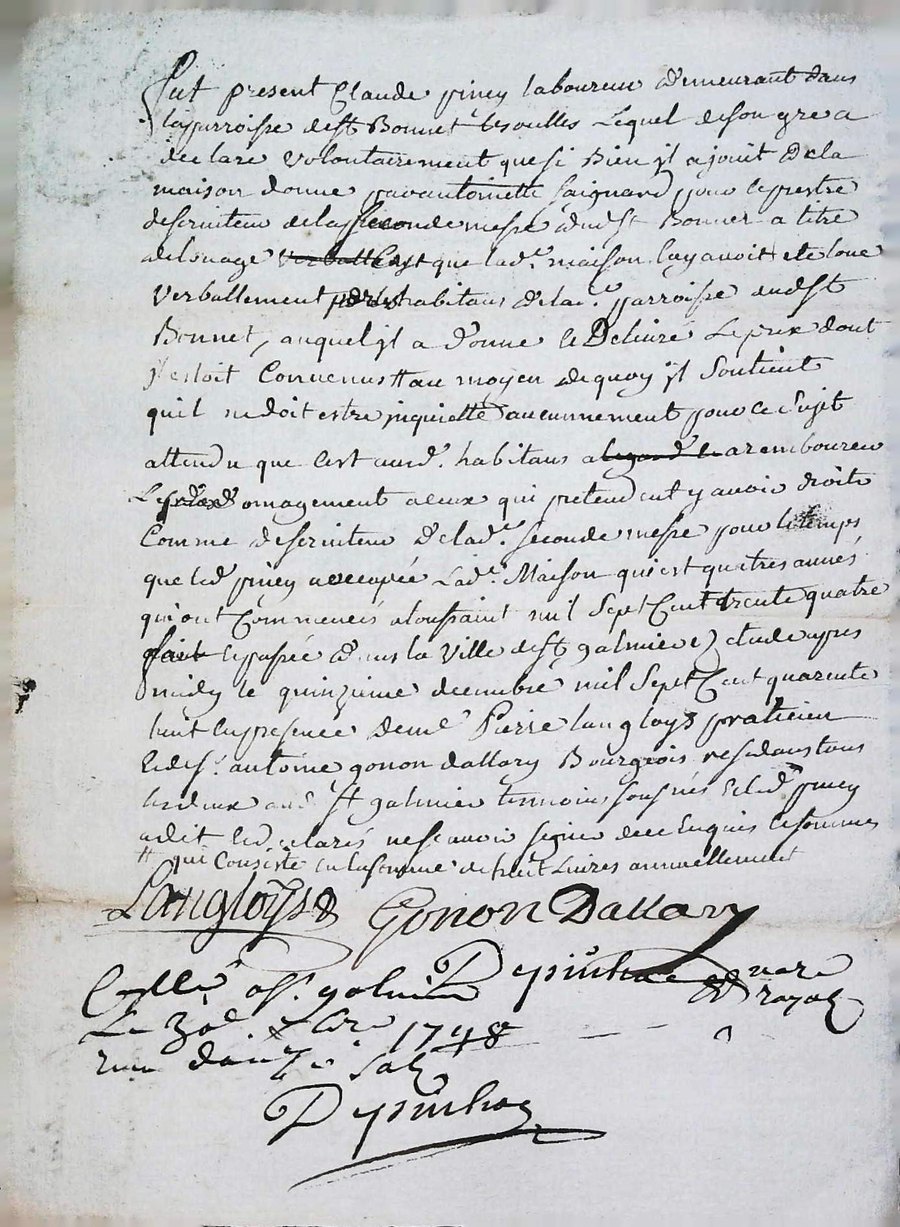 Fut present Claude piney laboureur demeurant dans
la parroisse de st Bonnet les oulles Lequel de son gre a
declare volontairement que si Bien jl a jouit de la
maison donne par antoinette saignard pour le prestre
deserviteur de la seconde messe dud st Bonnet a titre
de louage verballeme c'est que lade. maison luy avoit ete loue
verballement par les habitans de lade. parroisse dud st
Bonnet, auquel jl a donne et Delivré Le prix dont
jl estoit Convenus # au moyen de quoy jl soutient
quil ne doit estre inquietté aucunnement pour ce sujet
attendu que cest ausd. habitans a rembourcer
Le domagement a ceux qui pretendent y avoir droits
Comme deserviteur de lade. seconde messe pour le temps
que led piney a occupée Lade. Maison qui est quatres années
qui ont Commencés a toussaint mil sept Cent trente quatre
fait et passée dans la ville de st galmier Etude apres
midy le quinzieme decembre mil sept Cent quarente
huit en presence de me Pierre langloys praticien
et de sr. antoine gonon dallary Bourgeois residans tous
les deux aud st galmier temoins sousnés Et led piney
a dit et declarés ne scavoir signer de ce Enquis et sommes
# qui Consiste en la somme de huit Livres annuellement
Langloys
Gonon Dallary
Depinhac nore royal
Collé a st. galmier
Le 1748
Reçu douze sols
Depinhac